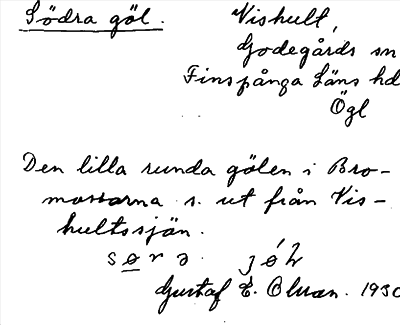 Södra göl. Vishult,
Godegårds sn
Finspånga Läns hd
Ögl
Den lilla runda gölen i Bro-
mossarna s. ut från Vis-
hultssjön.
Gustaf E. Olsson. 1930